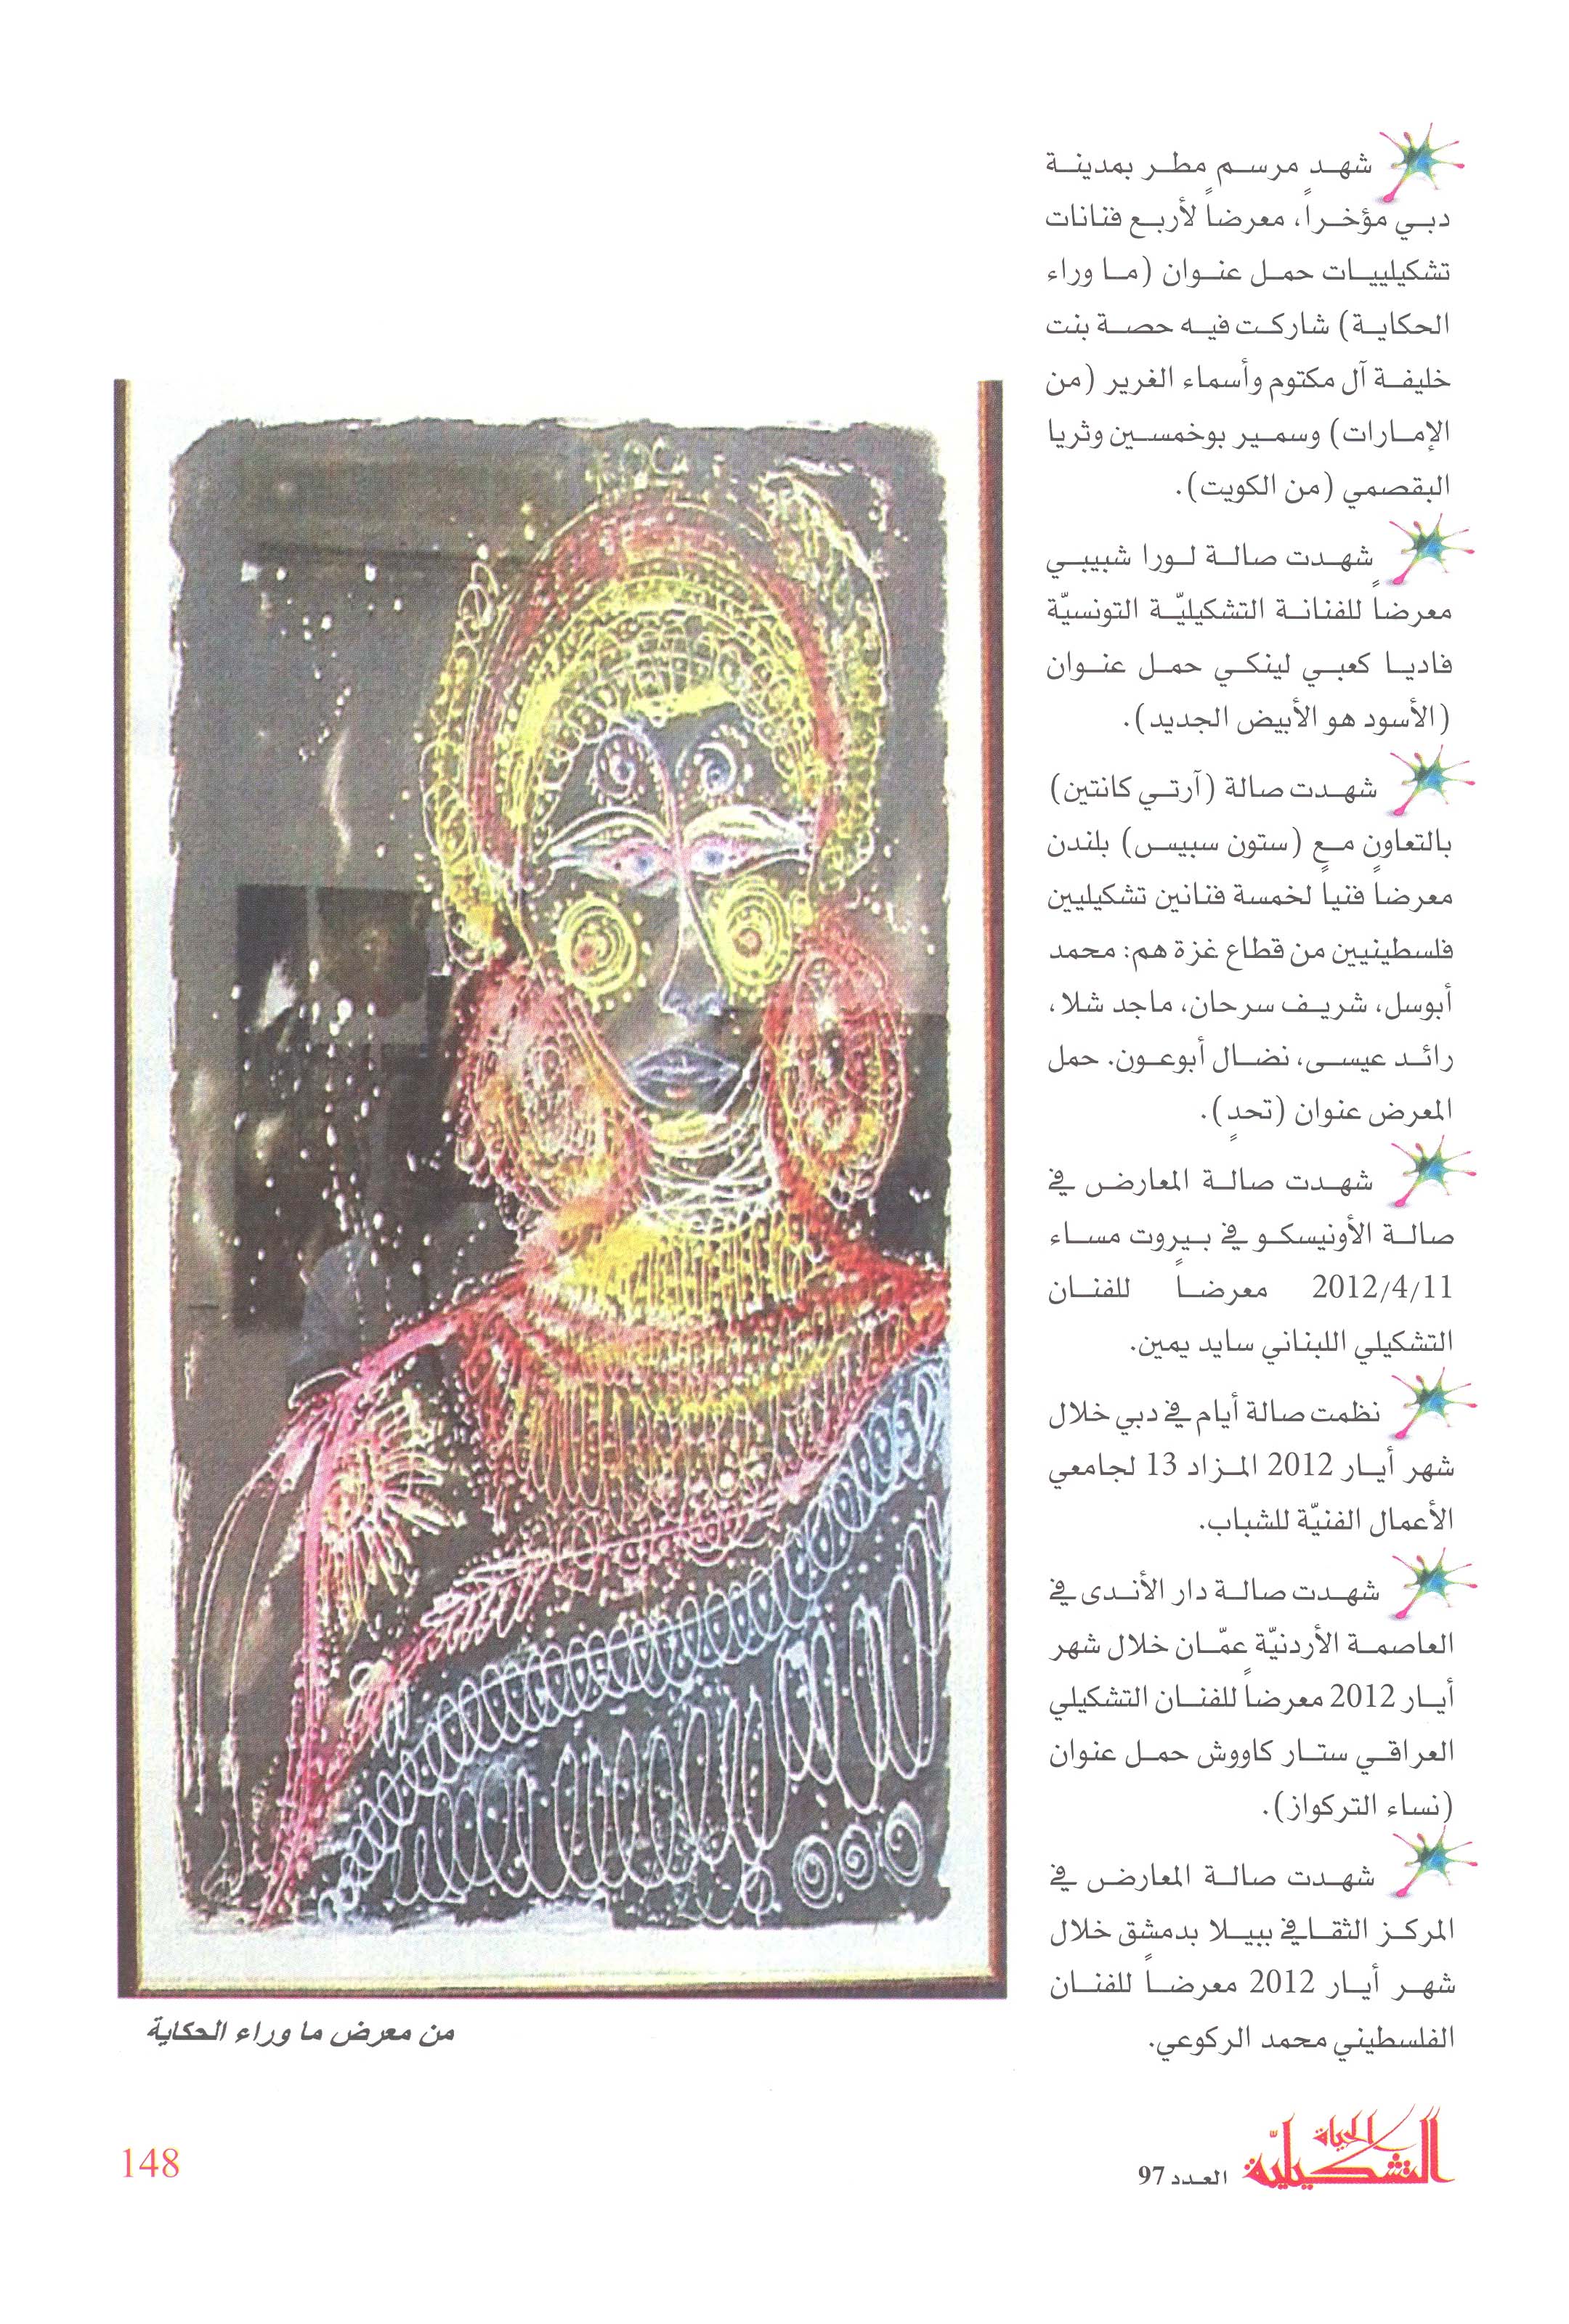 شهد مرسم مطر بمدينة
دبي مؤخراً، معرضاً لأربع فنانات
تشكيلييات حمل عنوان (ما وراء
الحكاية) شاركت فيه حصة بنت
خليفة آل مكتوم وأسماء الغرير (من
الإمارات) وسمير بوخمسين وثريا
البقصمي (من الكويت).
شهدت صالة لورا شبيبي
معرضاً للفنانة التشكيليّة التونسيّة
فاديا كعبي لينكي حمل عنوان
(الأسود هو الأبيض الجديد).
شهدت صالة (آرتي كانتين)
بالتعاون مع (ستون سبيس) بلندن
معرضاً فنياً لخمسة فنانين تشكيليين
فلسطينيين من قطاع غزة هم: محمد
أبوسل، شريف سرحان، ماجد شلا،
رائد عيسى، نضال أبوعون. حمل
المعرض عنوان (تحدٍ).
شهدت صالة المعارض في
صالة الأونيسكو في بيروت مساء
2012/4/11 معرضاً للفنان
التشكيلي اللبناني سايد يمين.
نظمت صالة أيام في دبي خلال
شهر أيار 2012 المزاد 13 لجامعي
الأعمال الفنيّة للشباب.
شهدت صالة دار الأندى في
العاصمة الأردنيّة عمّان خلال شهر
أيار 2012 معرضاً للفنان التشكيلي
العراقي ستار كاووش حمل عنوان
(نساء التركواز).
شهدت صالة المعارض في
المركز الثقافي ببيلا بدمشق خلال
شهر أيار 2012 معرضاً للفنان
الفلسطيني محمد الركوعي.
من معرض ما وراء الحكاية
الحياة
التشكيليّة
العدد 97
148